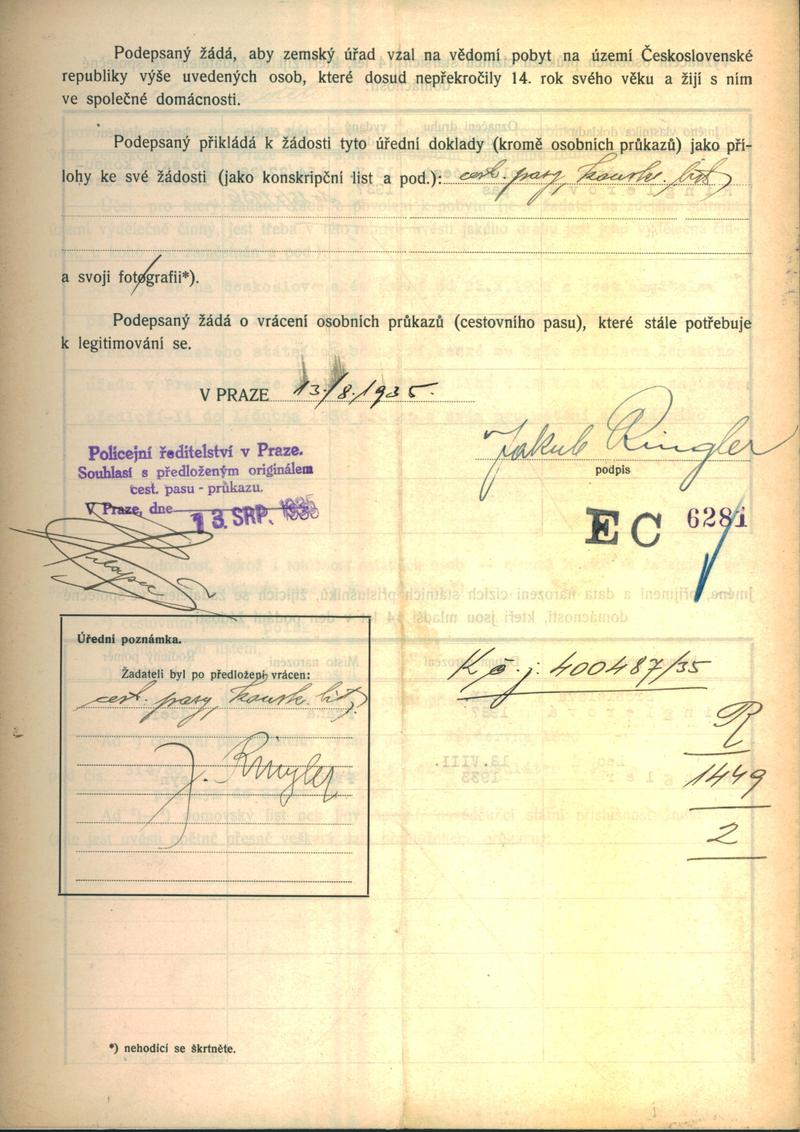 Podepsaný žádá, aby zemský úřad vzal na vědomí pobyt na území Československé
republiky výše uvedených osob, které dosud nepřekročily 14. rok svého věku a žijí s ním
ve společné domácnosti.
Podepsaný přikládá k žádosti tyto úřední doklady (kromě osobních průkazů) jako pří-
lohy ke své žádosti (jako konskripční list a pod.): cest. pasy, konsk. list
a svoji fotografii*).
Podepsaný žádá o vrácení osobních průkazů (cestovního pasu), které stále potřebuje
k legitimování se.
V PRAZE 13./8. 1935.
Jakub Ringler
podpis
Policejní ředitelství v Praze.
Souhlasí s předloženým originálem
cest. pasu - průkazu.
V Praze, dne 13. SRP. 1935
EC 6281
Úřední poznámka.
Žadateli byl po předložení vrácen:
cest. pasy, konsk. list
J. Ringler
K č. j. 400487/35
R
1449
2
*) nehodící se škrtněte.